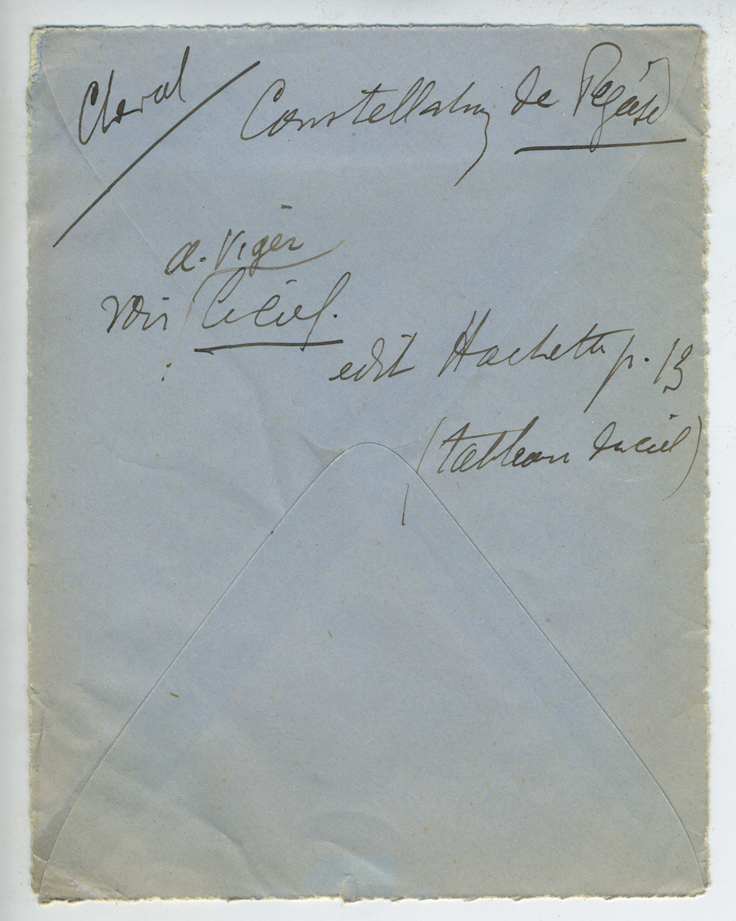 Cheval / Constellation de Pégase
A. Viger
voir Le ciel.
edit Hachette p. 13
(tableau du ciel)